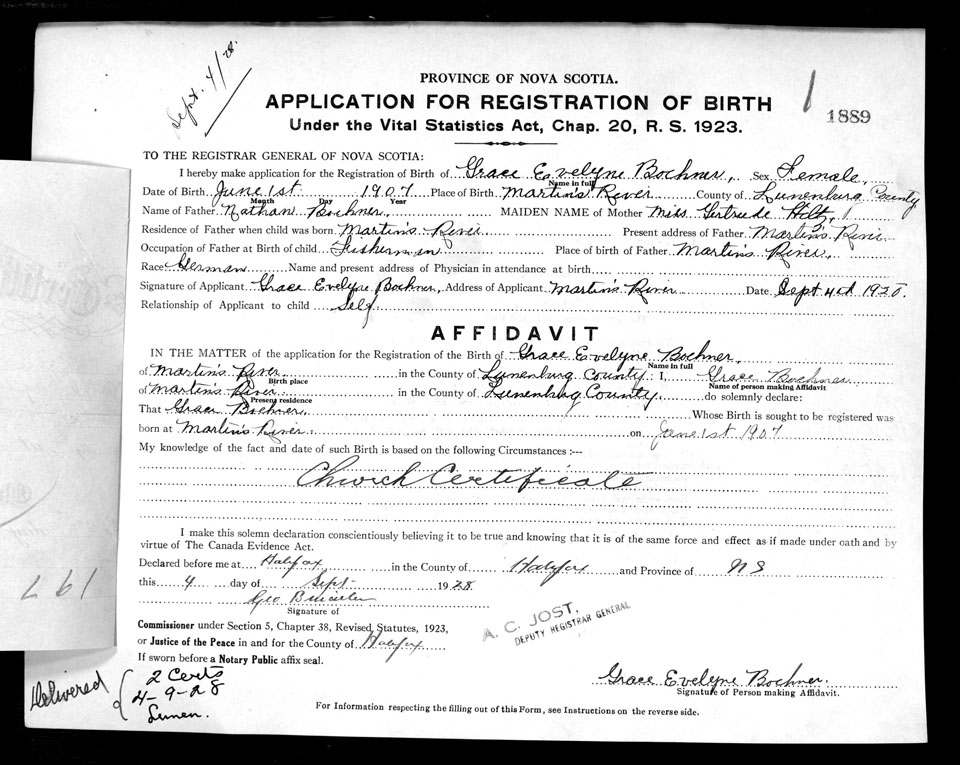 Sept. 4/28.
1
1889
PROVINCE OF NOVA SCOTIA.
APPLICATION FOR REGISTRATION OF BIRTH
Under the Vital Statistics Act, Chap. 20, R. S. 1923.
TO THE REGISTRAR GENERAL OF NOVA SCOTIA:
I hereby make application for the Registration of Birth of Grace Evelyne Bochner, Sex Female,
Name in full
Date of Birth June 1st 1907 Place of Birth Martin's River County of Lunenburg County
Month Day Year
Name of Father Nathan Bochner, MAIDEN NAME of Mother Miss Gertrude Hiltz,
Residence of Father when child was born Martin's River Present address of Father Martin's River
Occupation of Father at Birth of child Fisherman Place of birth of Father Martin's River,
Race German Name and present address of Physician in attendance at birth
Signature of Applicant Grace Evelyne Bochner, Address of Applicant Martin's River Date Sept 4th
Relationship of Applicant to child Self
AFFIDAVIT
IN THE MATTER of the application for the Registration of the Birth of Grace Evelyne Bochner,
Name in full
of Martin's River in the County of Lunenburg County. I, Grace Bochner
Birth place Name of person making Affidavit
of Martin's River in the County of Lunenburg County, do solemnly declare:
Present residence
That Grace Bochner, Whose Birth is sought to be registered was
born at Martin's River. on June 1st 1907
My knowledge of the fact and date of such Birth is based on the following Circumstances :---
Church Certificate
I make this solemn declaration conscientiously believing it to be true and knowing that it is of the same force and effect as if made under oath and by
virtue of The Canada Evidence Act.
Declared before me at Halifax in the County of Halifax and Province of NS
this 4 day of Sept 1928
Geo
Signature of
Commissioner under Section 5, Chapter 38, Revised Statutes, 1923,
or Justice of the Peace in and for the County of Halifax
If sworn before a Notary Public affix seal.
A. C. JOST,
DEPUTY REGISTRAR GENERAL
Grace Evelyne Bochner.
Signature of Person making Affidavit.
For Information respecting the filling out of this Form, see Instructions on the reverse side.
Delivered
2 Certs
4-9-28